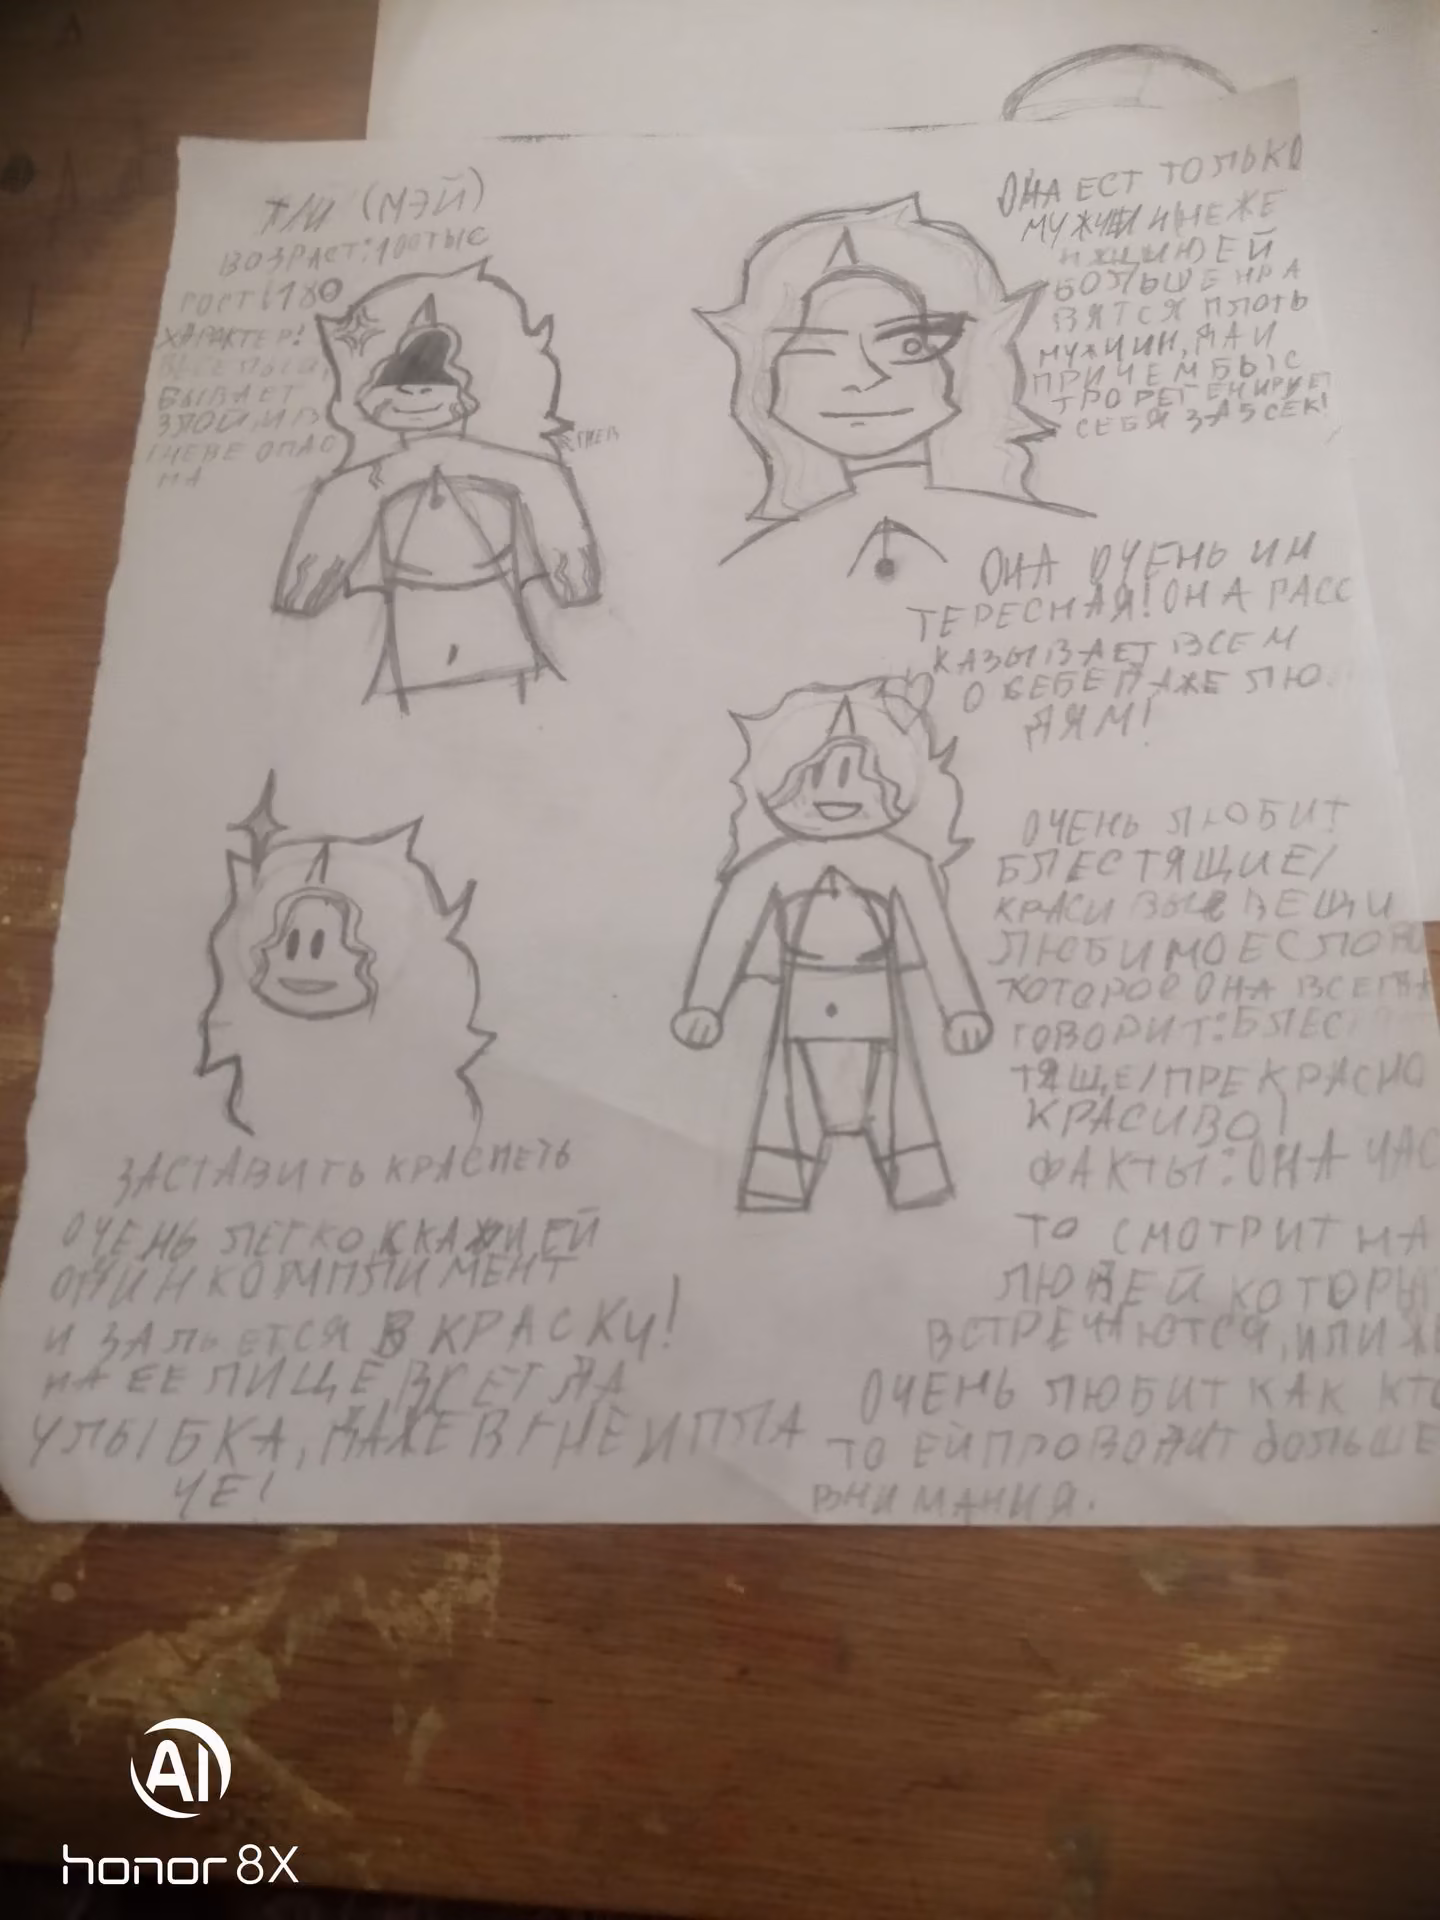 Т/И (МЭЙ)
ВОЗРАСТ: 100ТЫС
РОСТ: 180
ХАРАКТЕР:
БЫВАЕТ
ЗЛОЙ, И В
ГНЕВЕ ОПАС
НА
ГНЕВ
ОНА ЕСТ ТОЛЬКО
МУЖЧИН НЕЖЕ
ЕЙ
БОЛЬШЕ НРА
ВЯТСЯ ПЛОТЬ
МУЖЧИН, ДА И
ПРИЧЕМ БЫС
ТРО РЕГЕНИРУЕТ
СЕБЯ ЗА 5 СЕК!
ОНА ОЧЕНЬ ИН
ТЕРЕСНАЯ! ОНА РАСС
КАЗЫВАЕТ ВСЕМ
О СЕБЕ ДАЖЕ ЛЮ
ДЯМ!
ОЧЕНЬ ЛЮБИТ
БЛЕСТЯЩИЕ/
КРАСИВЫЕ ВЕЩИ
ЛЮБИМОЕ СЛОВО
КОТОРОЕ ОНА ВСЕГДА
ГОВОРИТ: БЛЕС
ТЯЩЕ/ПРЕКРАСНО
КРАСИВО!
ФАКТЫ: ОНА ЧАС
ТО СМОТРИТ НА
ЛЮДЕЙ КОТОРЫ
ВСТРЕЧАЮТСЯ, ИЛИ ЖЕ
ОЧЕНЬ ЛЮБИТ КАК КТО
ТО ЕЙ ПРОВОДИТ БОЛЬШЕ
ВНИМАНИЯ.
ЗАСТАВИТЬ КРАСНЕТЬ
ОЧЕНЬ ЛЕГКО СКАЖИ ЕЙ
ОДИН КОМПЛИМЕНТ
И ЗАЛЬЕТСЯ В КРАСКУ!
НА ЕЕ ЛИЦЕ ВСЕГДА
УЛЫБКА, ДАЖЕ В ГНЕ И ПЛА
ЧЕ!
AI
honor 8X